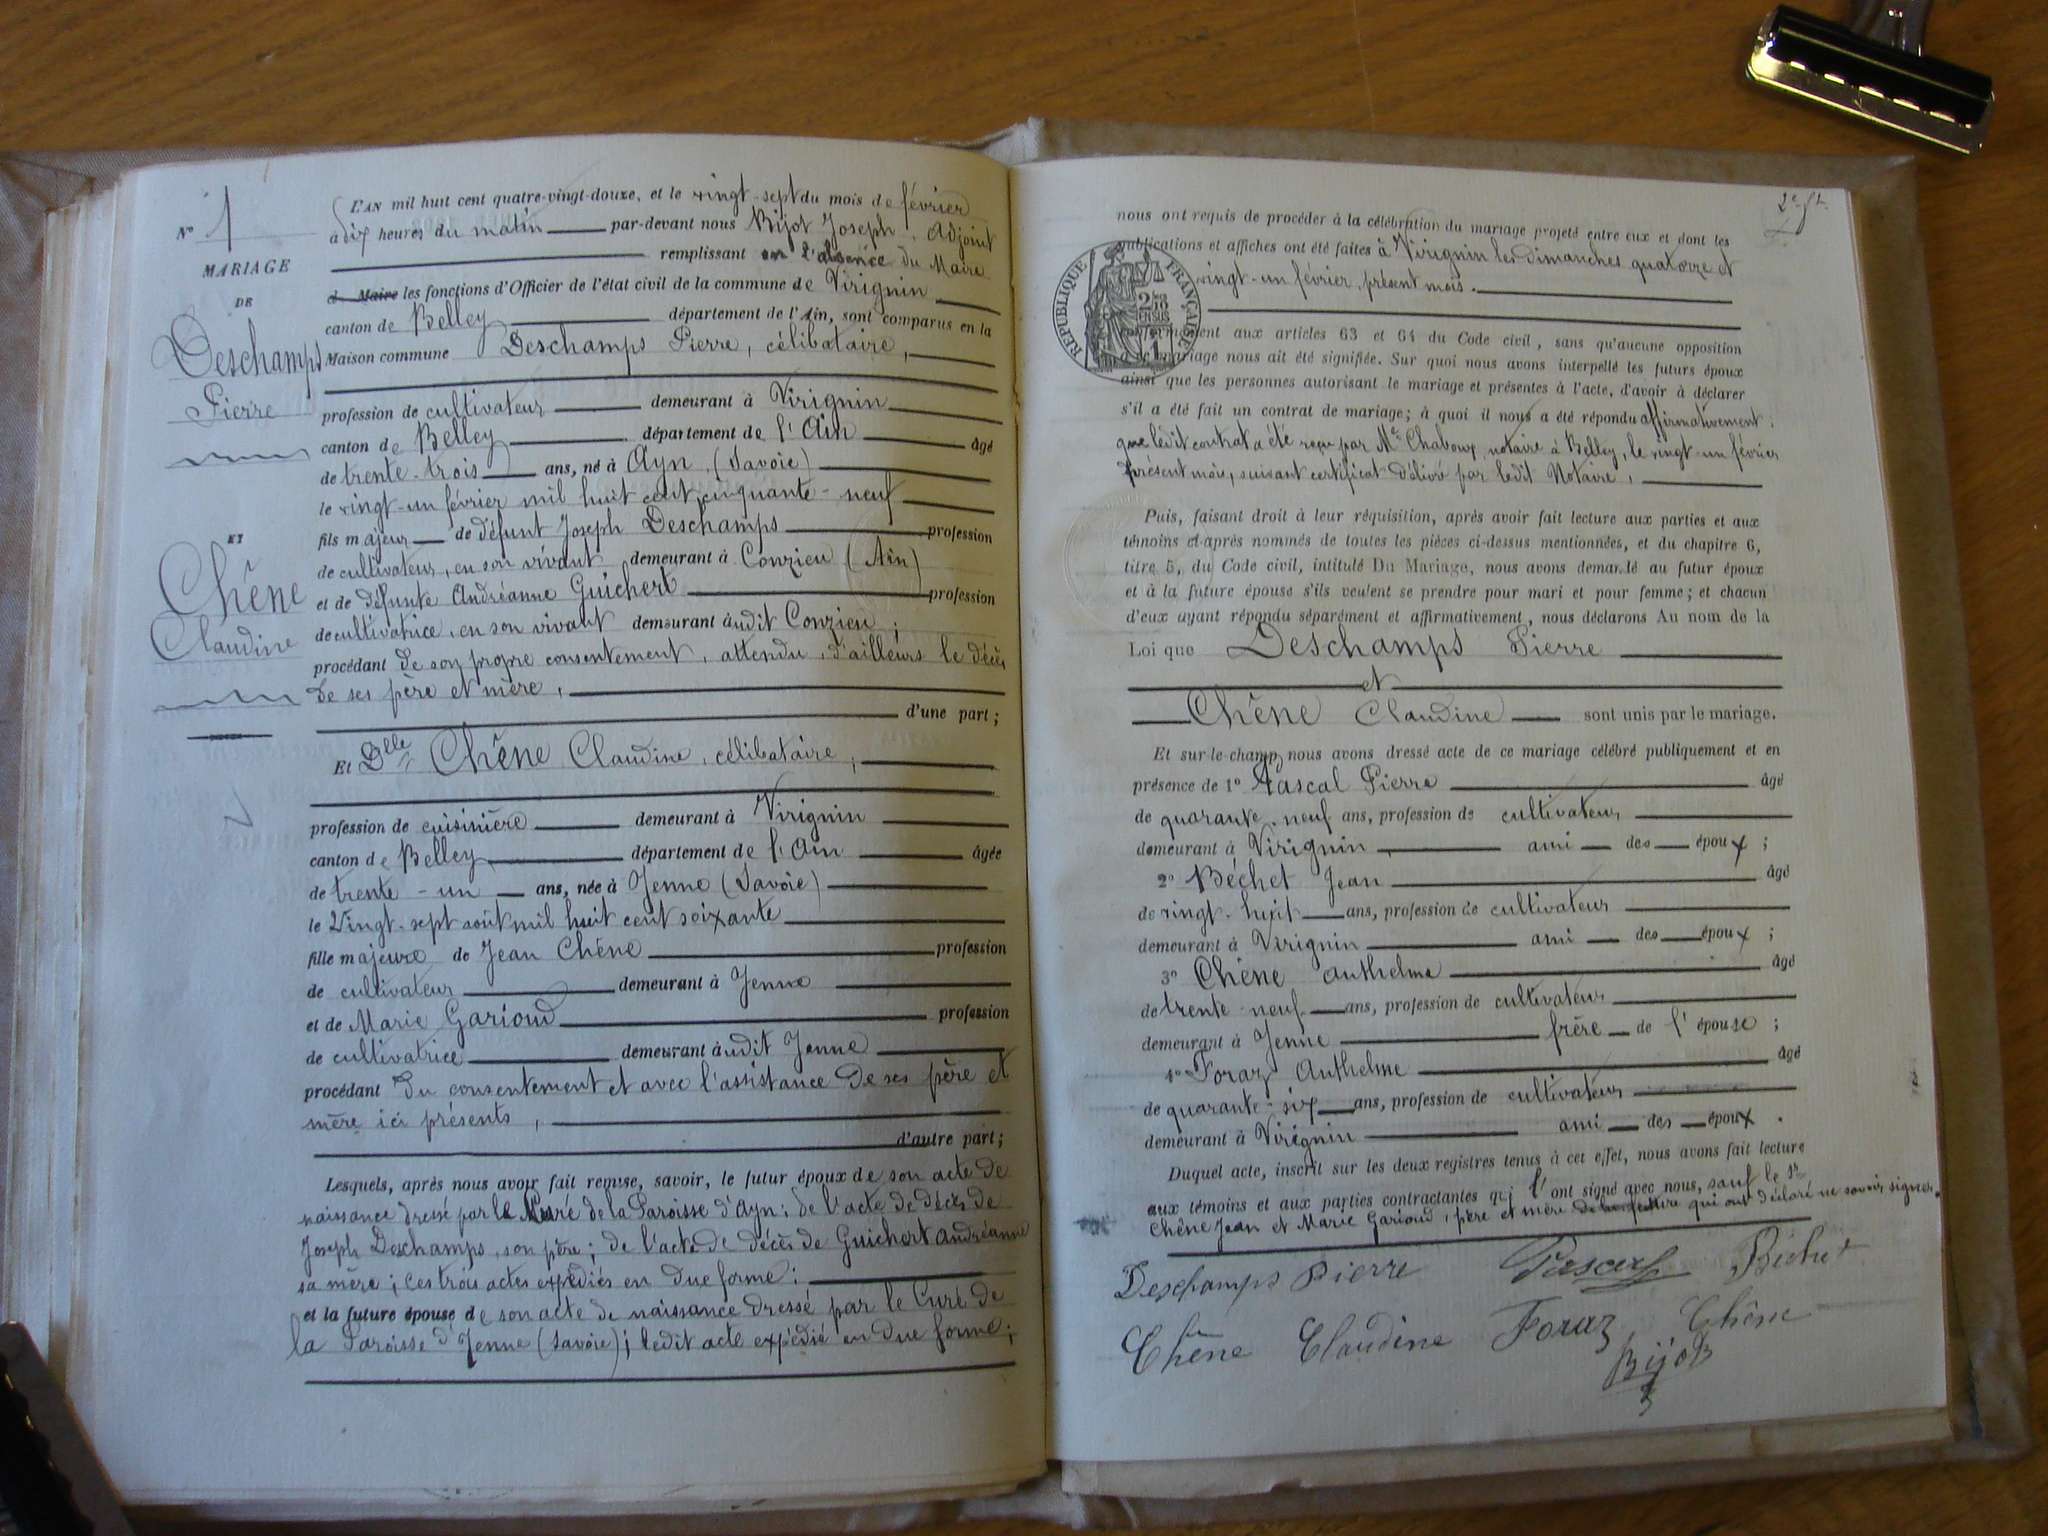 N° 1
MARIAGE
DE
Deschamps
Pierre
ET
Chêne
Claudine
L'AN mil huit cent quatre-vingt-douze, et le vingt-sept du mois de février
à dix heures du matin par-devant nous Bijot Joseph, Adjoint
remplissant en l'absence du Maire
de Maire les fonctions d'Officier de l'état civil de la commune de Virignin
canton de Belley département de l'Ain, sont comparus en la
Maison commune Deschamps Pierre, célibataire,
profession de cultivateur demeurant à Virignin
canton de Belley département de l'Ain âgé
de trente-trois ans, né à Ayn (Savoie)
le vingt-un février mil huit cent cinquante-neuf
fils majeur de défunt Joseph Deschamps profession
de cultivateur, en son vivant demeurant à Conzieu (Ain)
et de défunte Andréanne Guichert profession
de cultivatrice, en son vivant demeurant audit Conzieu ;
procédant de son propre consentement, attendu, d'ailleurs le décès
de ses père et mère,
d'une part ;
Et Delle Chêne Claudine, célibataire ;
profession de cuisinière demeurant à Virignin
canton de Belley département de l'Ain âgée
de trente-un ans, née à Jenne (Savoie)
le Vingt-sept août mil huit cent soixante
fille majeure de Jean Chêne profession
de cultivateur demeurant à Jenne
et de Marie Garioud profession
de cultivatrice demeurant audit Jenne
procédant du consentement et avec l'assistance de ses père et
mère ici présents,
d'autre part ;
Lesquels, après nous avoir fait remise, savoir, le futur époux de son acte de
naissance dressé par le Curé de la Paroisse d'Ayn ; de l'acte de décès de
Joseph Deschamps, son père ; de l'acte de décès de Guichert Andréanne
sa mère ; ces trois actes expédiés en due forme ;
et la future épouse de son acte de naissance dressé par le Curé de
la Paroisse d'Jenne (Savoie) ; ledit acte expédié en due forme ;
nous ont requis de procéder à la célébration du mariage projeté entre eux et dont les
publications et affiches ont été faites à Virignin les dimanches quatorze et
vingt-un février, présent mois.
RÉPUBLIQUE FRANÇAISE
conformément aux articles 63 et 64 du Code civil, sans qu'aucune opposition
à ce mariage nous ait été signifiée. Sur quoi nous avons interpellé les futurs époux
ainsi que les personnes autorisant le mariage et présentes à l'acte, d'avoir à déclarer
s'il a été fait un contrat de mariage ; à quoi il nous a été répondu affirmativement :
que ledit contrat a été reçu par Me Chaboux, notaire à Belley, le vingt-un février
présent mois, suivant certificat délivré par ledit Notaire.
Puis, faisant droit à leur réquisition, après avoir fait lecture aux parties et aux
témoins ci-après nommés de toutes les pièces ci-dessus mentionnées, et du chapitre 6,
titre 5, du Code civil, intitulé Du Mariage, nous avons demandé au futur époux
et à la future épouse s'ils veulent se prendre pour mari et pour femme ; et chacun
d'eux ayant répondu séparément et affirmativement, nous déclarons Au nom de la
Loi que Deschamps Pierre
et
Chêne Claudine sont unis par le mariage.
Et sur-le-champ nous avons dressé acte de ce mariage célébré publiquement et en
présence de 1° Pascal Pierre âgé
de quarante-neuf ans, profession de cultivateur
demeurant à Virignin ami des époux ;
2° Béchet Jean âgé
de vingt-huit ans, profession de cultivateur
demeurant à Virignin ami des époux ;
3° Chêne Anthelme âgé
de trente-neuf ans, profession de cultivateur
demeurant à Jenne frère de l'épouse ;
4° Foraz Anthelme âgé
de quarante-six ans, profession de cultivateur
demeurant à Virignin ami des époux.
Duquel acte, inscrit sur les deux registres tenus à cet effet, nous avons fait lecture
aux témoins et aux parties contractantes qui l'ont signé avec nous, sauf le Sr
Chêne Jean et Marie Garioud, père et mère de la future qui ont déclaré ne savoir signer.
Deschamps Pierre Pascal Béchet
Chêne Claudine Foraz Chêne
Bijot